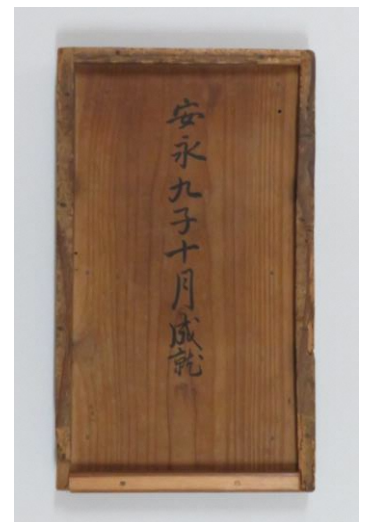 安永九子十月成就